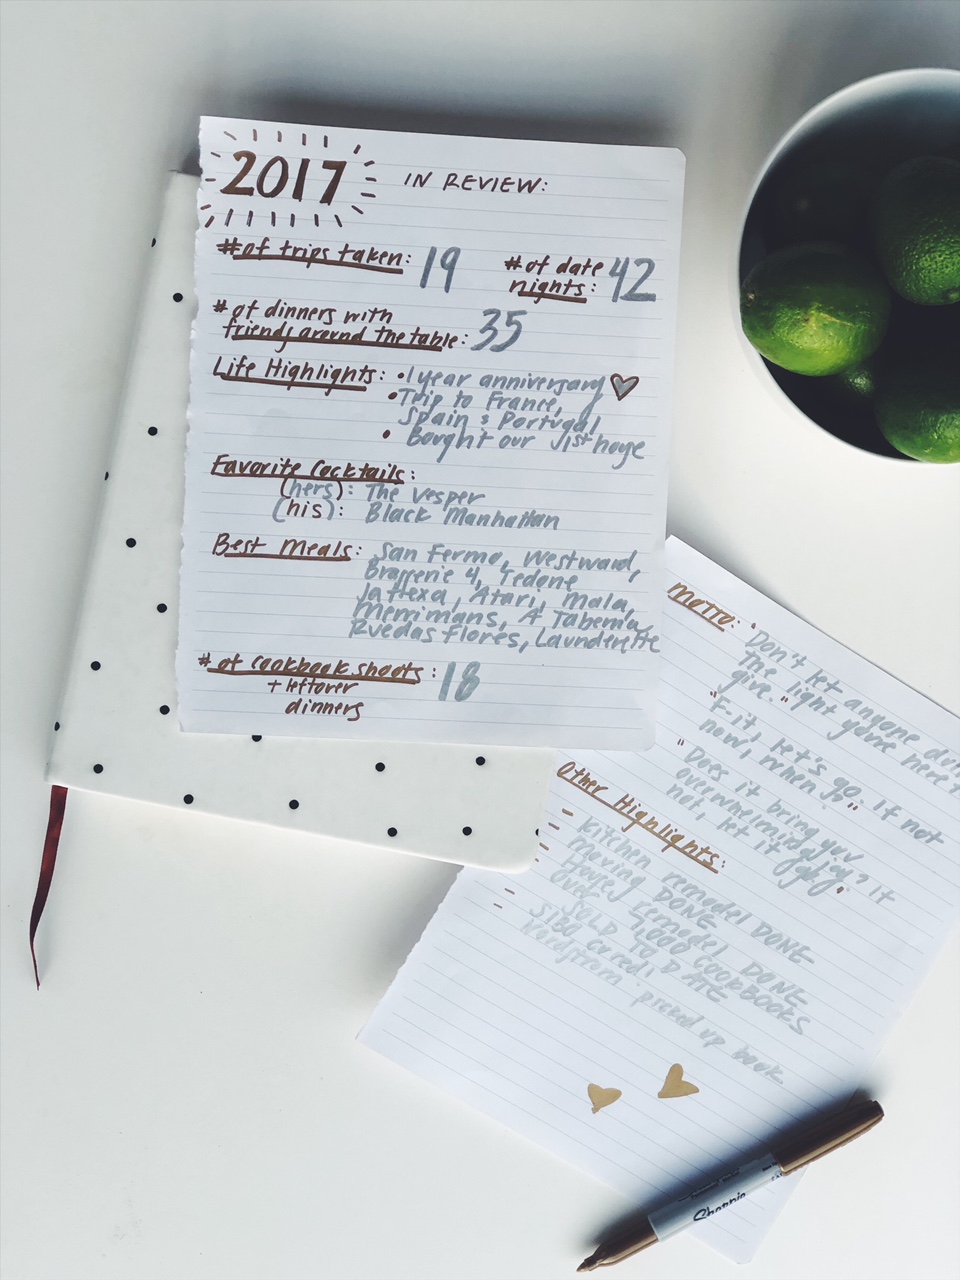 2017 IN REVIEW:
# of trips taken: 19
# of date
nights: 42
# of dinners with
friends around the table: 35
Life Highlights: • 1 year anniversary
• Trip to France,
Spain & Portugal
• Bought our 1st house
Favorite Cocktails:
(hers): The Vesper
(his): Black Manhattan
Best Meals: San Fermo, Westward,
Brasserie 4, Tedone
La Flexa, Atari, Mala,
Merrimans, A Taberna
Ruedas Flores, Laundrette
# of cookbook shoots: 18
+ leftover
dinners
MOTTO: "Don't let anyone dim
the light you're here
give."
"F it, let's go. If not
now, when do"
"Does it bring you
overwhelming joy? If
not, let it go!"
Other Highlights:
- Kitchen remodel DONE
- Moving DONE
House remodel DONE
- Over 7,000 COOKBOOKS
SOLD TO DATE
- SIBA cured!
Nordstrom picked up book
Sharpie